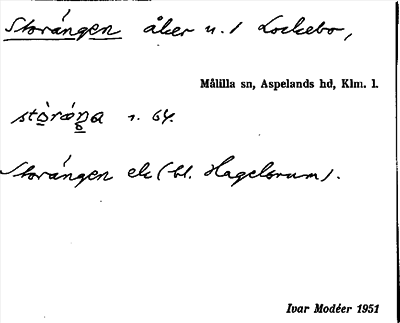 Storängen åker u. 1 Lockebo,
Målilla sn, Aspelands hd, Klm. l.
1. 64.
Storängen ek (bl. Hagelsrum).
Ivar Modéer 1951